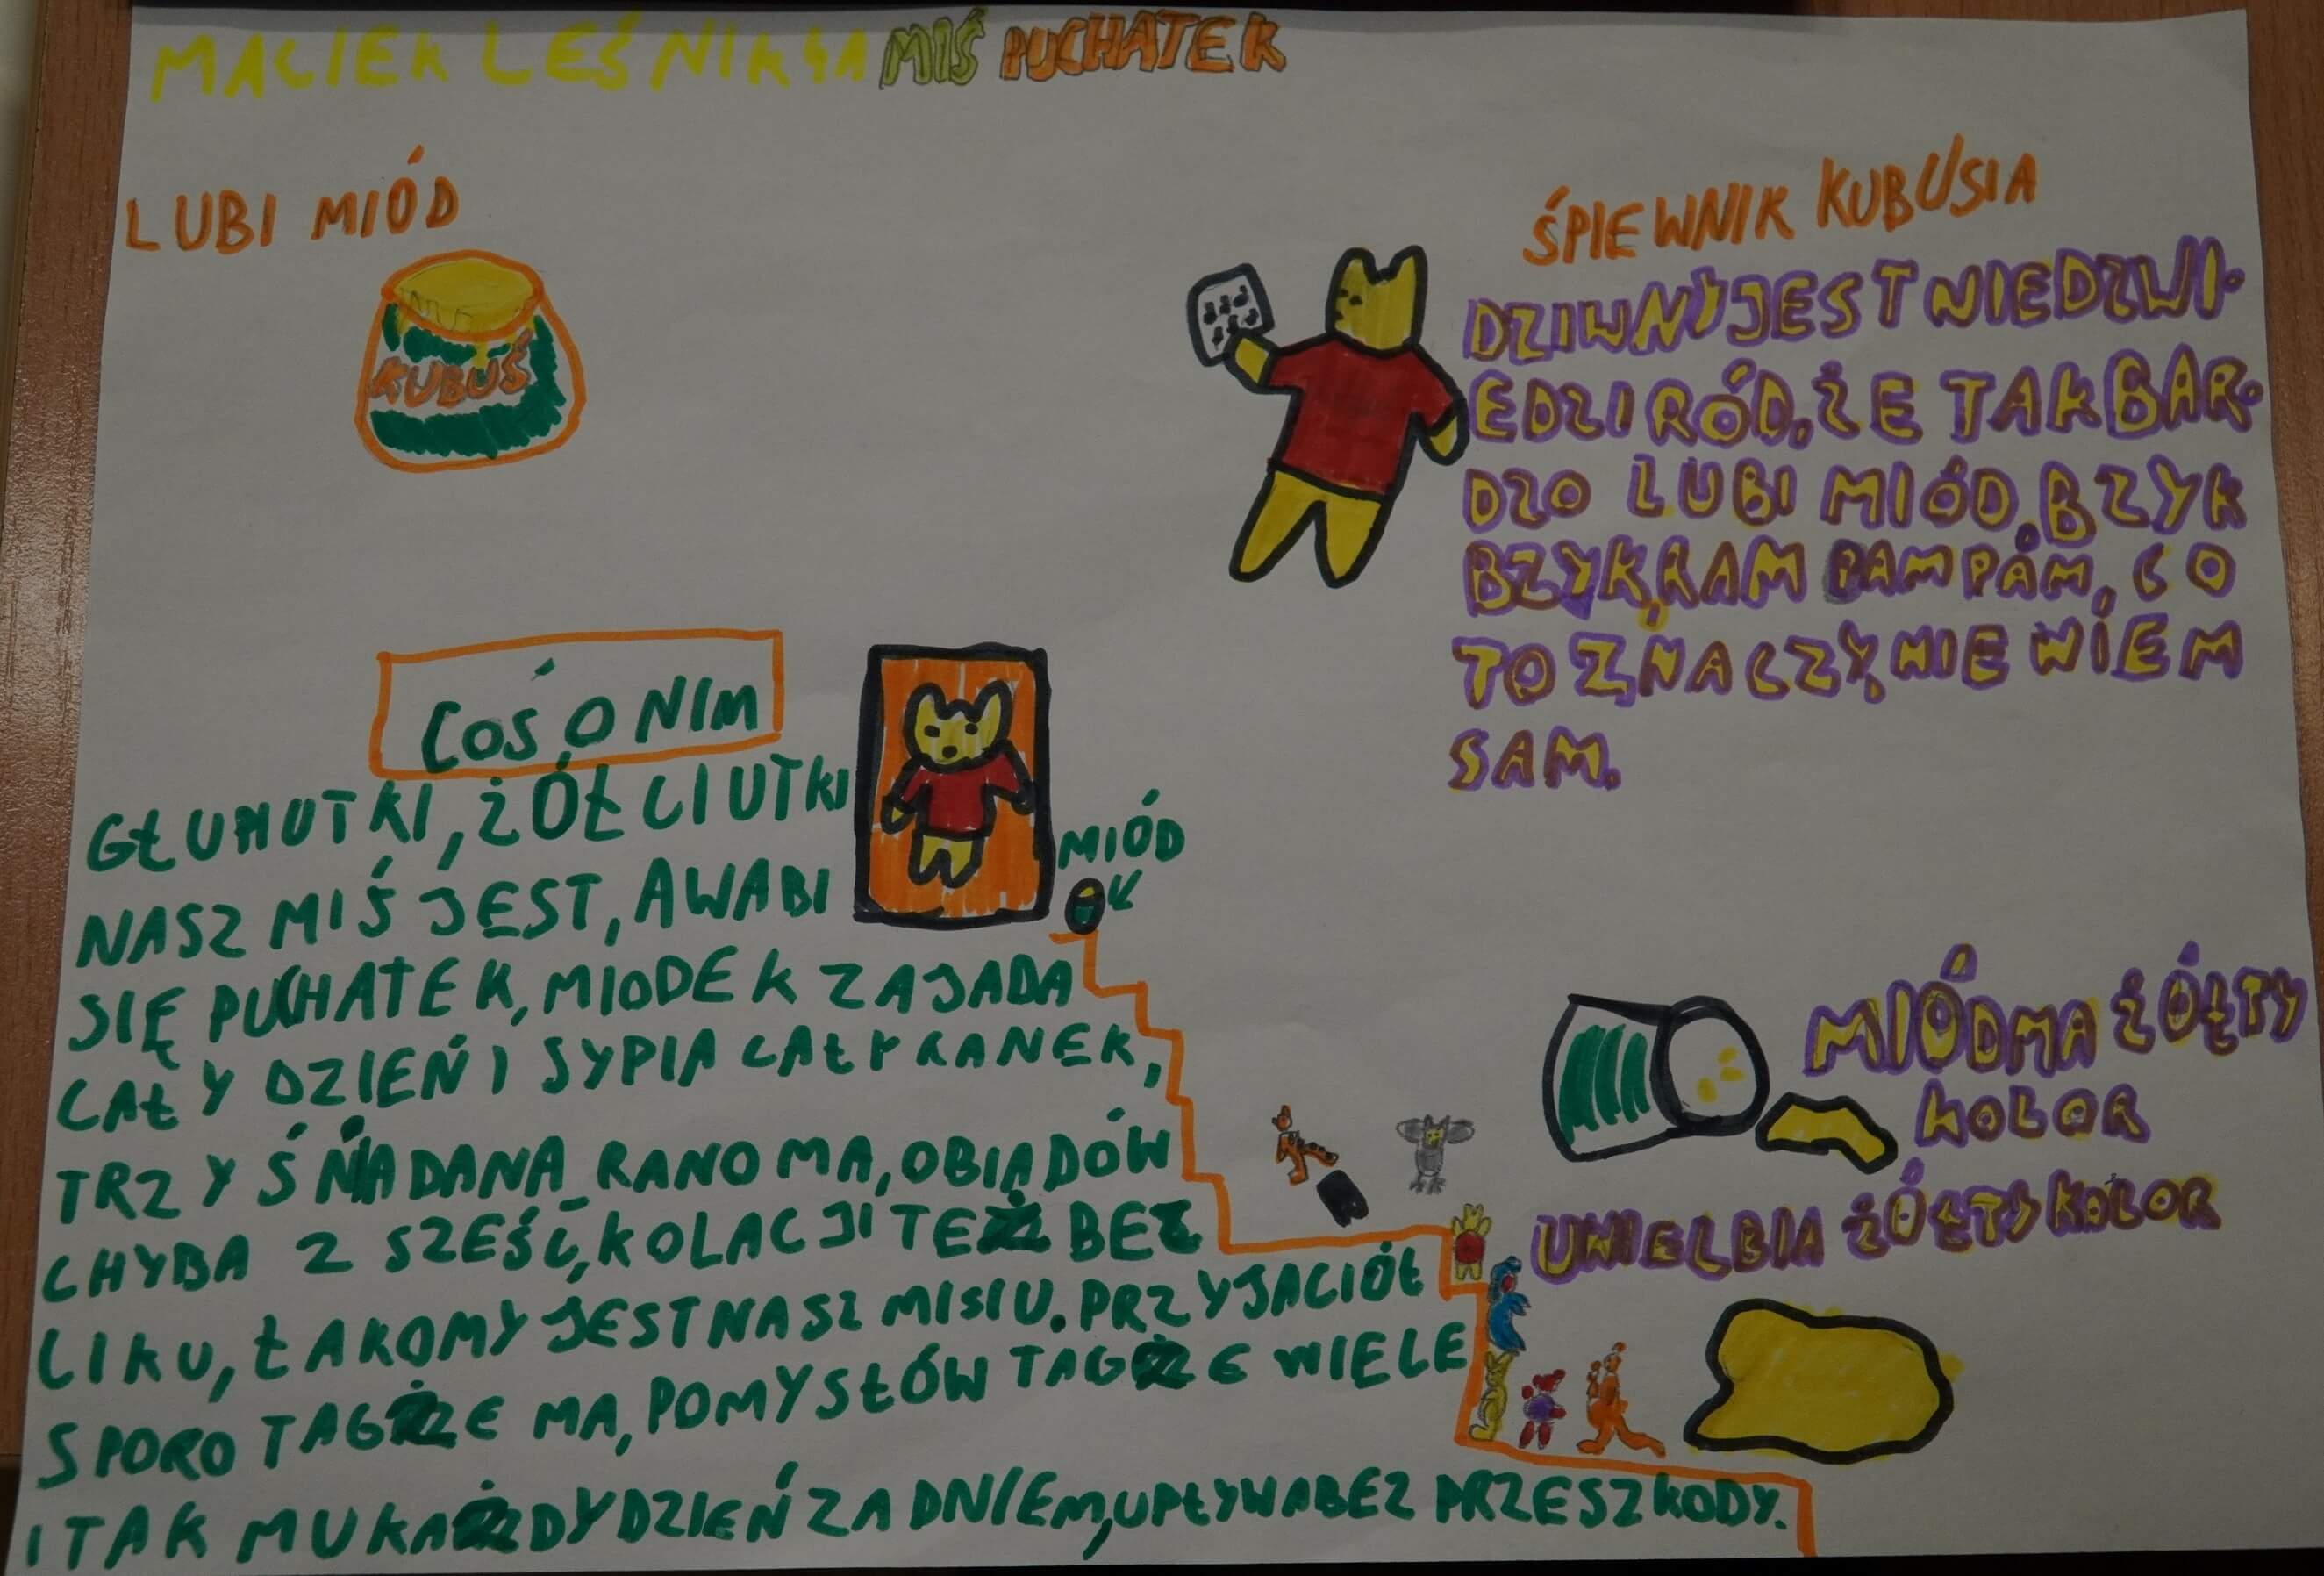 MACIEK LEŚNIK 4A MIŚ PUCHATEK
LUBI MIÓD
KUBUŚ
ŚPIEWNIK KUBUSIA
DZIWNY JEST NIEDZWI-
EDZI RÓD, ŻE TAK BAR-
DZO LUBI MIÓD, BZYK
BZYK, RAM PAM PAM, CO
TO ZNACZY, NIE WIEM
SAM.
COŚ O NIM
GŁUMUTKI, ŻÓŁCIUTKI
NASZ MIŚ JEST, A WABI
SIĘ PUCHATEK, MIODEK ZAJADA
CAŁY DZIEŃ I SYPIA CAŁY RANEK,
TRZY ŚŃADANA RANO MA, OBIADÓW
CHYBA Z SZEŚĆ, KOLACJI TEŻ BEZ
LIKU, ŁAKOMY JEST NASZ MISIU. PRZYJACIÓŁ
SPORO TAGŻE MA, POMYSŁÓW TAGŻE WIELE
I TAK MU KAŻDY DZIEŃ ZA DNIEM, UPŁYWA BEZ PRZESZKODY.
MIÓD
MIÓD MA ŻÓŁTY
KOLOR
UWIELBIA ŻÓŁTY KOLOR